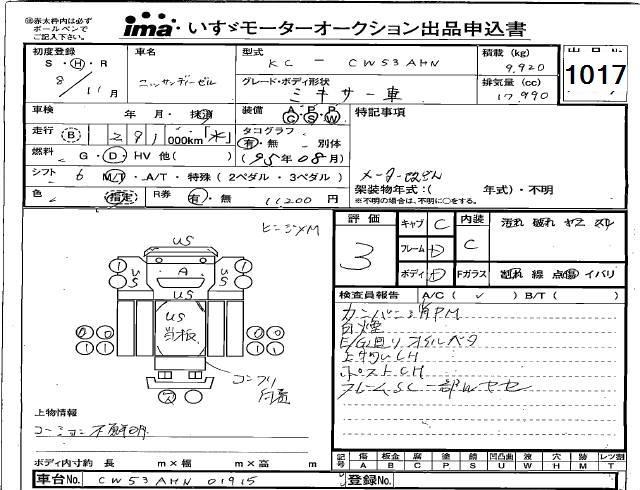 ㊟赤太枠内は必ず
ボールペンで
ご記入下さい。
ima・いすゞモーターオークション出品申込書
初度登録 車名 型式 KC - CW53AHN 積載 (kg) 9,920 出品No.
S・H・R 8/11月 ニッサンディーゼル グレード・ボディ形状 ミキサー車 排気量 (cc) 17,990 1017
車検 年 月・抹消 装備 A C P S P W 特記事項
走行 B 291 000km「*」 タコグラフ 有・無 別体
燃料 G・D・HV 他( ) (95年08月)
シフト 6 MT・A/T・特殊(2ペダル・3ペダル) メーター改ざん
架装物年式:( 年式)・不明
色 指定 R券 有・無 11,200円 ※不明の場合は、不明に○をする。
評価 3 キャブ C 内装 C 汚れ 破れ ヤニ スレ
フレーム D
ボディ D Fガラス 割れ 線 点傷 イバリ
検査員報告 A/C ( ✓ ) B/T ( )
白煙
E/G廻リオイルベタ
フレームSC一部サビ
US
US A US
US
US
コンクリ付着
上物情報
コーション不鮮明
ボディ内寸約 長 m×幅 m×高 m
記号 傷 A 板金 B 腐 C 塗 P 錆 S 凹凸曲 U 波 W 穴 H 跡 M レツ割 T
車台No. CW53AHN 01915 登録No.